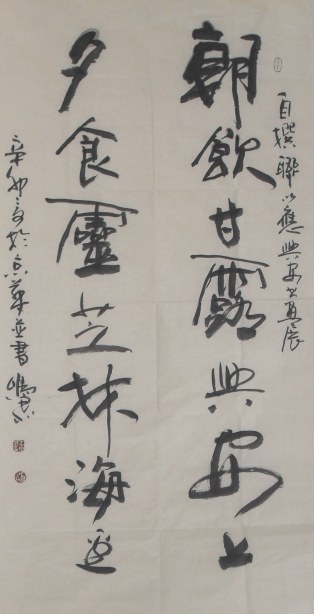 自撰聯以應興安書畫展
朝飲甘露興安上
夕食靈芝林海邊
辛卯於京華並書